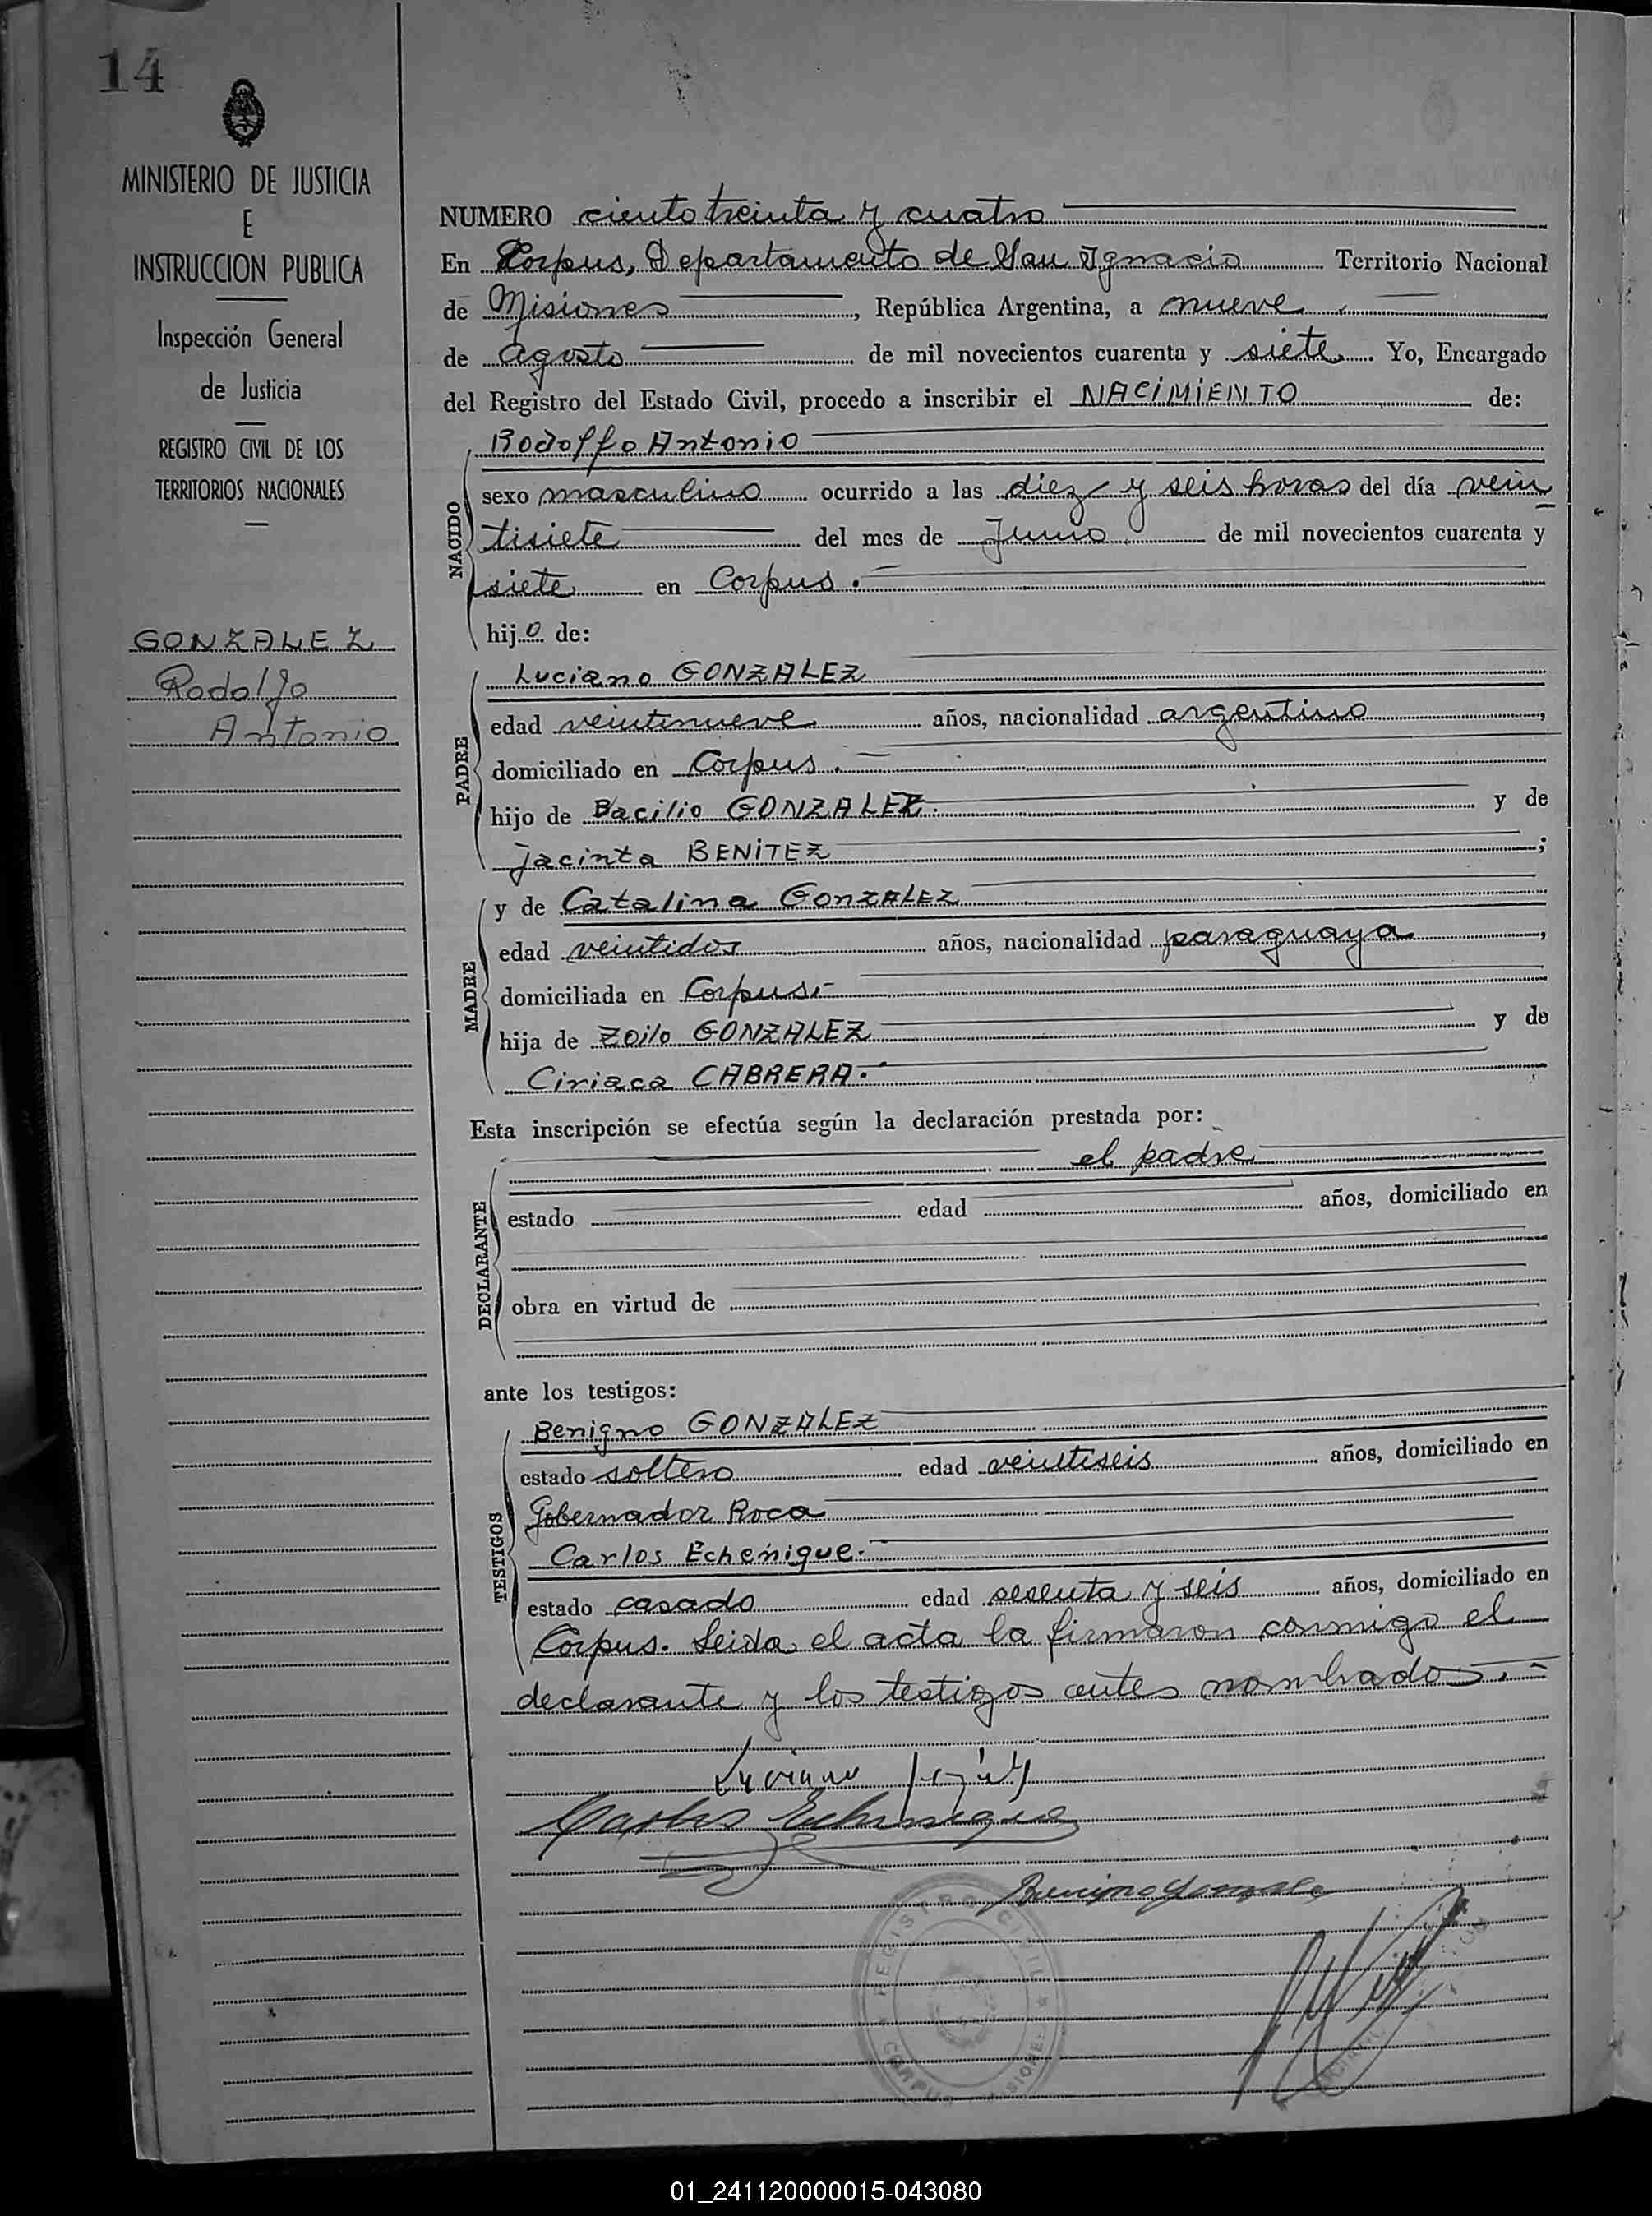 14
MINISTERIO DE JUSTICIA
E
INSTRUCCION PUBLICA
Inspección General
de Justicia
REGISTRO CIVIL DE LOS
TERRITORIOS NACIONALES
GONZALEZ
Rodolfo
Antonio
NUMERO ciento treinta y cuatro
En Corpus, Departamento de San Ignacio Territorio Nacional
de Misiones, República Argentina, a nueve
de agosto de mil novecientos cuarenta y siete. Yo, Encargado
del Registro del Estado Civil, procedo a inscribir el NACIMIENTO de:
NACIDO
Rodolfo Antonio
sexo masculino ocurrido a las diez y seis horas del día vein
tisiete del mes de Junio de mil novecientos cuarenta y
siete en Corpus.
hijo de:
PADRE
Luciano GONZALEZ
edad veintinueve años, nacionalidad argentino,
domiciliado en Corpus.
hijo de Bacilio GONZALEZ. y de
Jacinta BENITEZ;
MADRE
y de Catalina GONZALEZ
edad veintidos años, nacionalidad paraguaya,
domiciliada en Corpus.-
hija de Zoilo GONZALEZ y de
Ciriaca CABRERA.
Esta inscripción se efectúa según la declaración prestada por:
DECLARANTE
el padre
estado edad años, domiciliado en
obra en virtud de
ante los testigos:
TESTIGOS
Benigno GONZALEZ
estado soltero edad veintiseis años, domiciliado en
Gobernador Roca
Carlos Echenique.
estado casado edad sesenta y seis años, domiciliado en
Corpus. Leida el acta la firmaron conmigo el
declarante y los testigos antes nombrados.-
Luciano
Carlos Echenique
REGISTRO CIVIL
CORPUS MISIONES
01_241120000015-043080